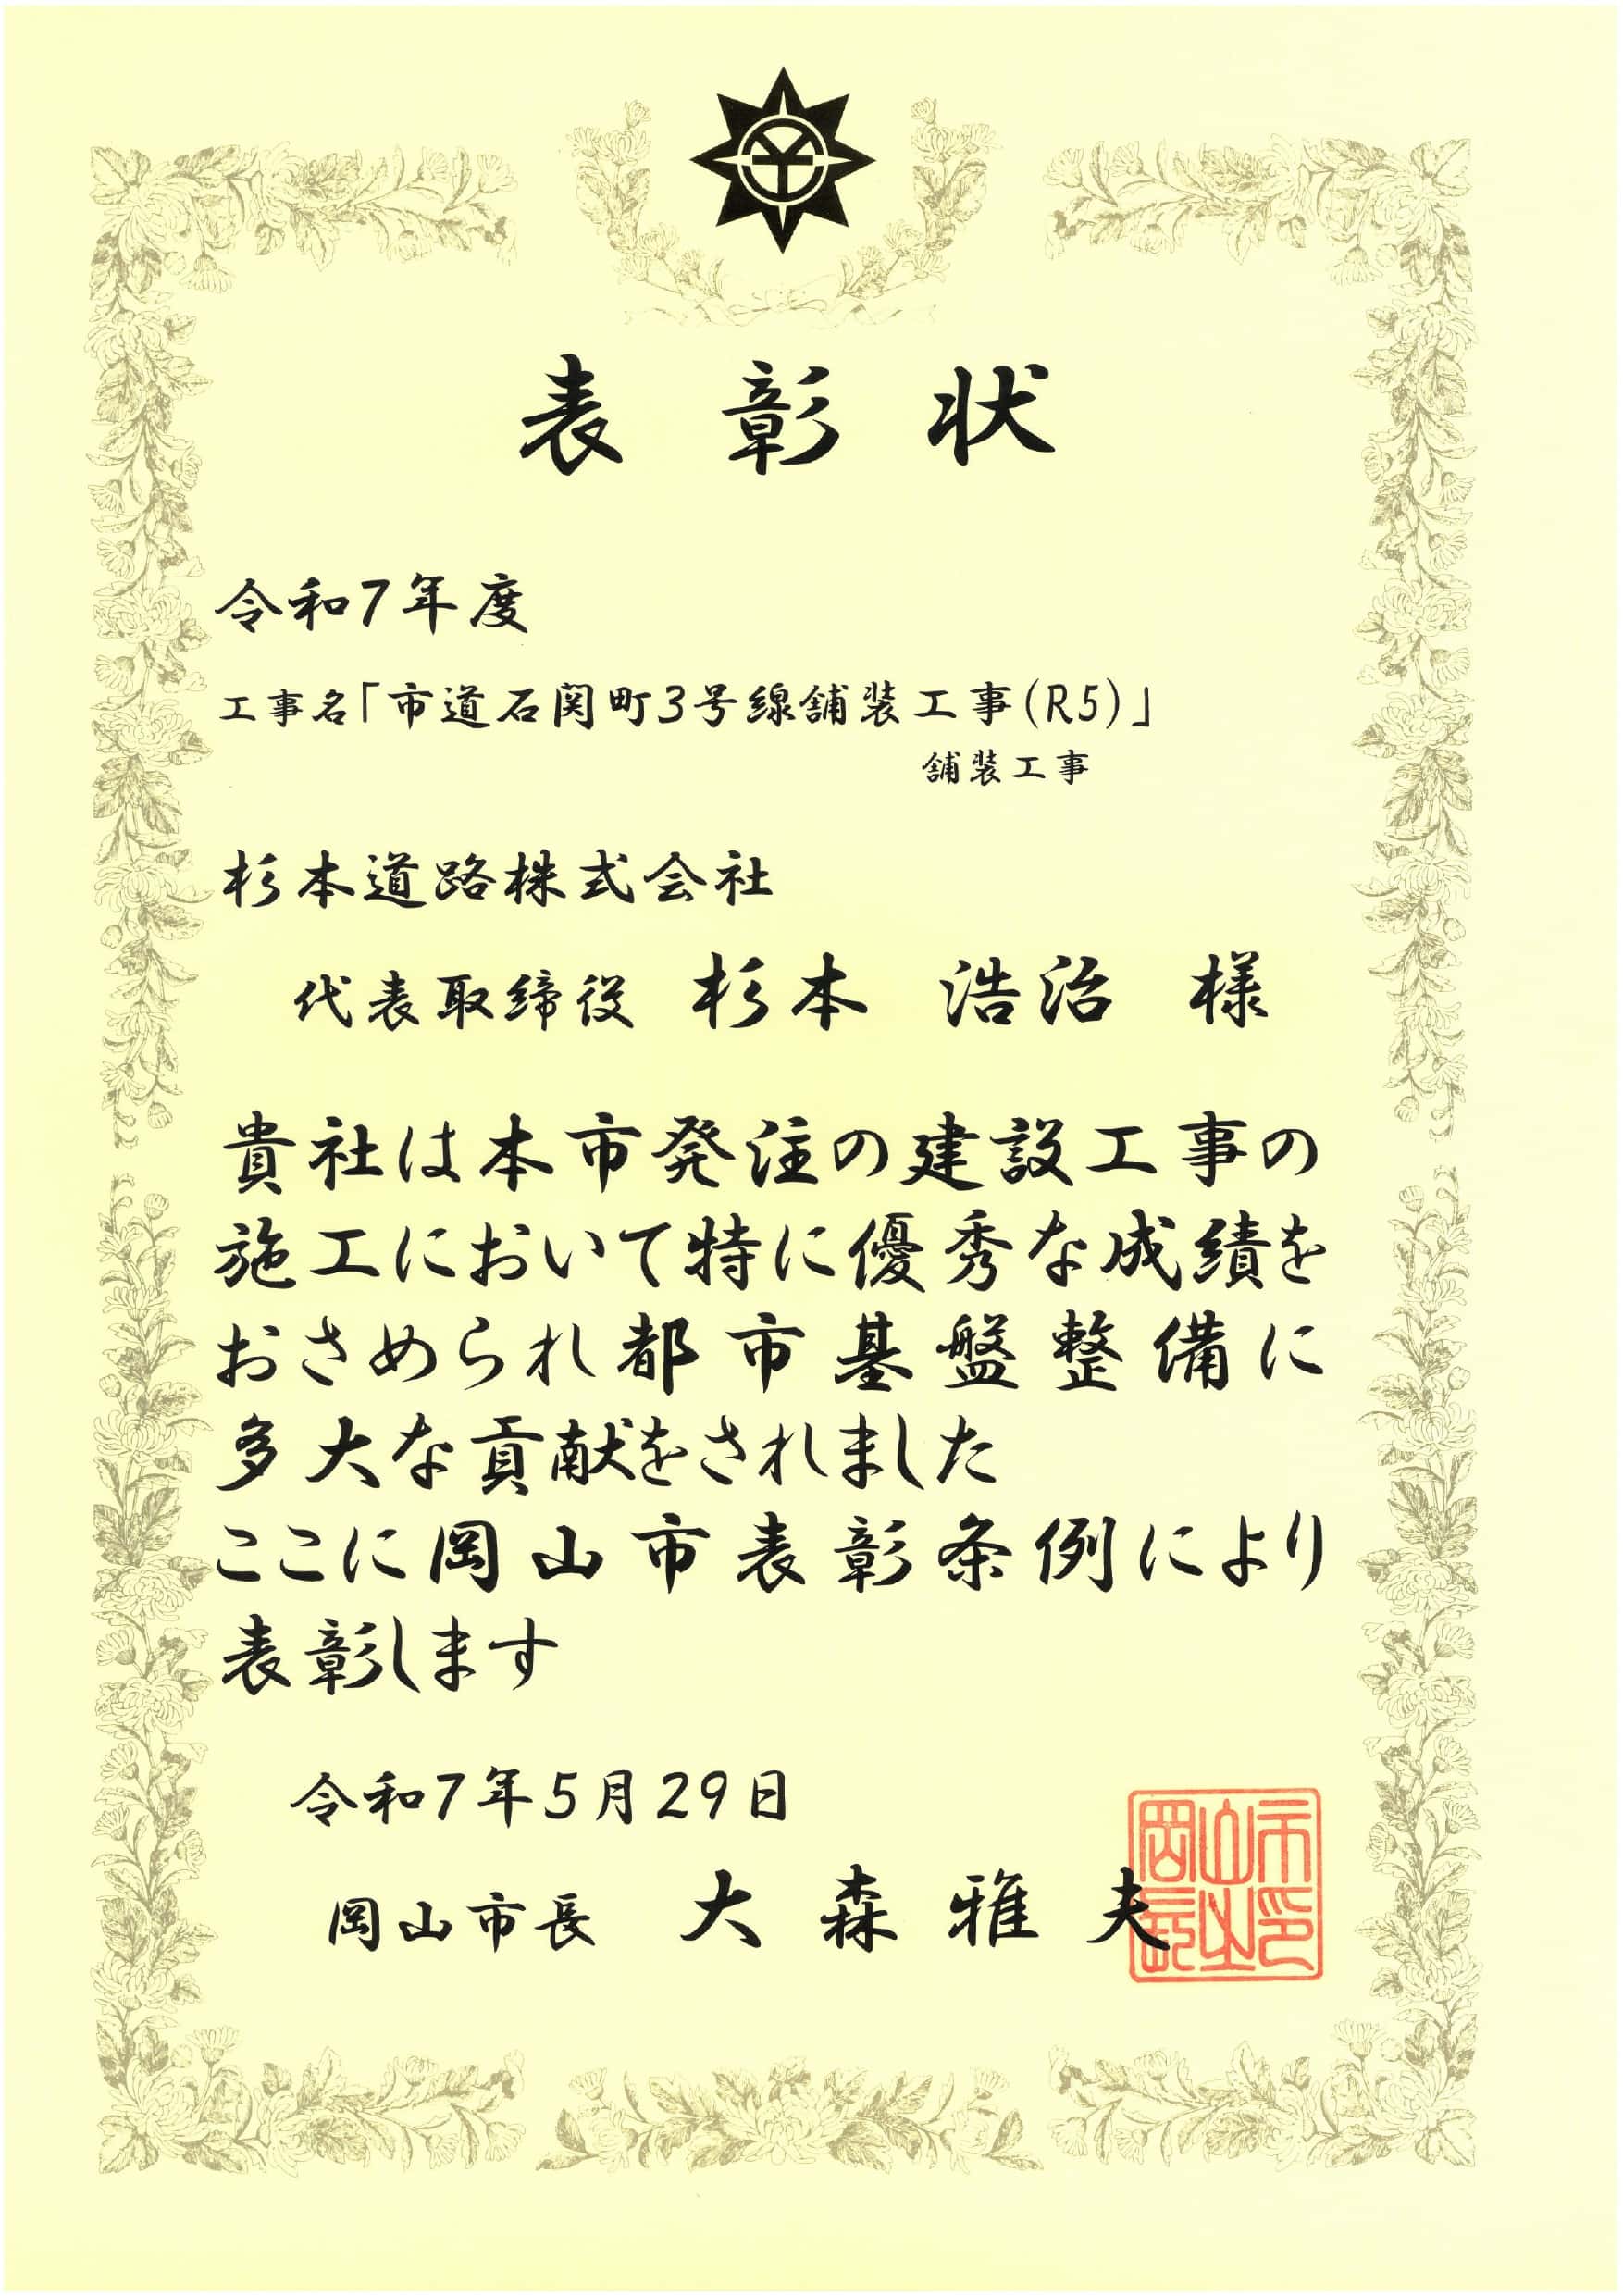 表彰状
令和7年度
工事名「市道石関町3号線舗装工事(R5)」
舗装工事
杉本道路株式会社
代表取締役 杉本 浩治 様
貴社は本市発注の建設工事の
施工において特に優秀な成績を
おさめられ都市基盤整備に
多大な貢献をされました
ここに岡山市表彰条例により
表彰します
令和7年5月29日
岡山市長 大森雅夫
岡山市長之印